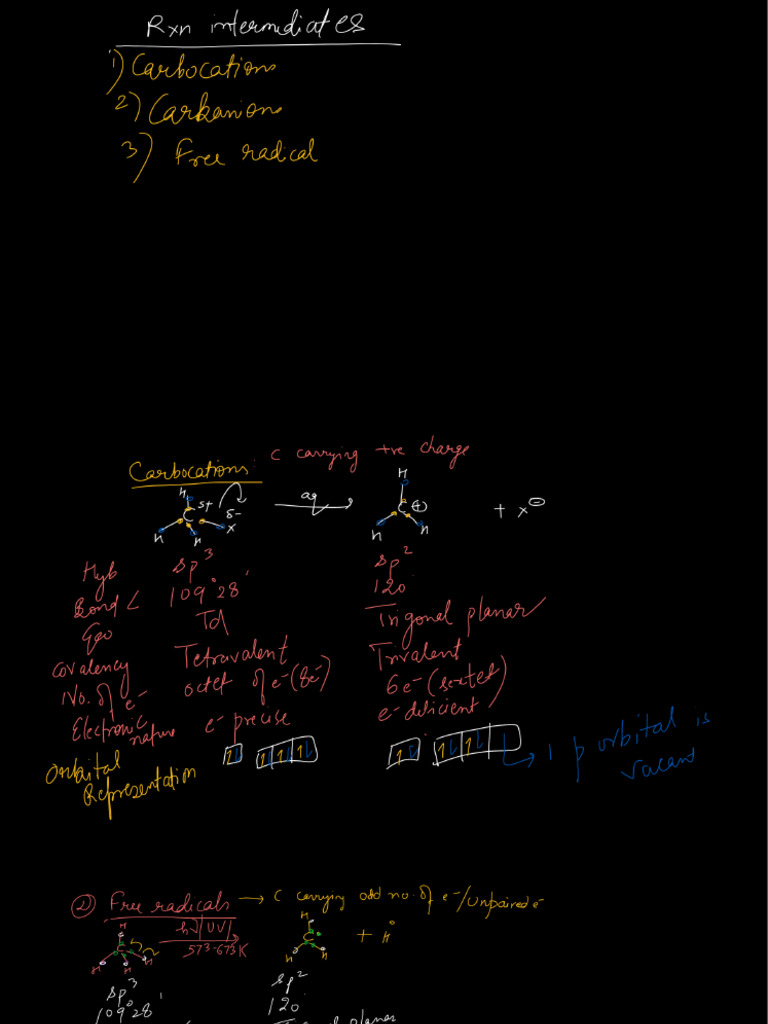 Rxn intermediates
1) Carbocations
2) Carbanions
3) Free radical
Carbocations: C carrying +ve charge
H H
C δ+ δ- X aq C ⊕ + X⊖
H H H H
Hyb sp³ sp²
Bond < 109°28' 120
Geo Td Trigonal planar
Covalency Tetravalent Trivalent
No. of e- octet of e- (8e-) 6e- (sextet)
Electronic nature e- precise e- deficient
Orbital Representation 1 p orbital is vacant
② Free radicals → C carrying odd no. of e-/Unpaired e-
H hν/UV H
C 573-673K C + H°
H H H H H
sp³ sp²
109°28' 120
planar